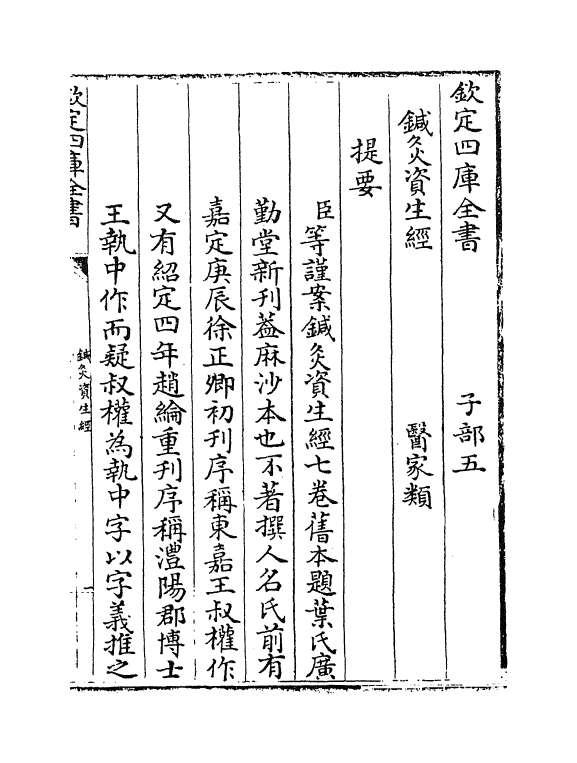 欽定四庫全書　子部五
鍼灸資生經　醫家類
提要
臣等謹案鍼灸資生經七卷舊本題葉氏廣
勤堂新刊葢麻沙本也不著撰人名氏前有
嘉定庚辰徐正卿初刋序稱東嘉王叔權作
又有紹定四年趙綸重刋序稱澧陽郡博士
王執中作而疑叔權為執中字以字義推之
欽定四庫全書
鍼灸資生經
一